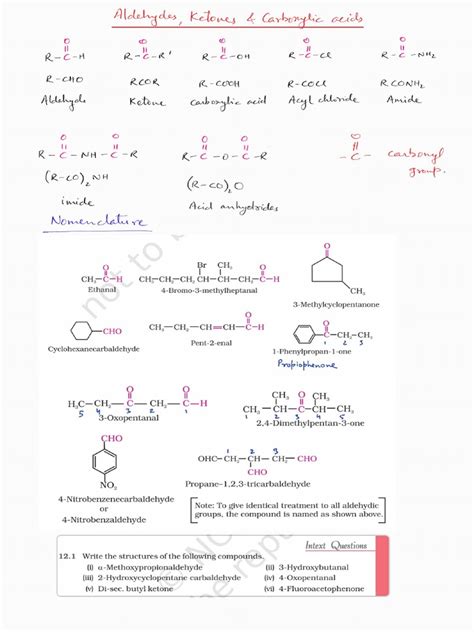 Aldehydes, Ketones & Carboxylic acids
O O O O O
R-C-H R-C-R' R-C-OH R-C-Cl R-C-NH2
R-CHO RCOR R-COOH R-COCl RCONH2
Aldehyde Ketone carboxylic acid Acyl chloride Amide
O O O O O
R-C-NH-C-R R-C-O-C-R -C- carbonyl group.
(R-CO)2NH (R-CO)2O
imide Acid anhydrides
Nomenclature
not to b
O Br CH3 O O
CH3-C-H CH3-CH2-CH2-CH-CH-CH2-C-H
Ethanal 4-Bromo-3-methylheptanal
CH3
3-Methylcyclopentanone
CHO
Cyclohexanecarbaldehyde
O
CH3-CH2-CH=CH-C-H
Pent-2-enal
O
C-CH2-CH3
1 2 3
1-Phenylpropan-1-one
Propiophenone
O O
H3C-CH2-C-CH2-C-H
5 4 3 2 1
3-Oxopentanal
CH3 O CH3
CH3-CH-C-CH-CH3
1 2 3 4 5
2,4-Dimethylpentan-3-one
CHO
NO2
4-Nitrobenzenecarbaldehyde
or
4-Nitrobenzaldehyde
1 2 3
OHC-CH2-CH-CH2-CHO
CHO
Propane-1,2,3-tricarbaldehyde
Note: To give identical treatment to all aldehydic
groups, the compound is named as shown above.
Intext Questions
12.1 Write the structures of the following compounds.
(i) α-Methoxypropionaldehyde (ii) 3-Hydroxybutanal
(iii) 2-Hydroxycyclopentane carbaldehyde (iv) 4-Oxopentanal
(v) Di-sec. butyl ketone (vi) 4-Fluoroacetophenone